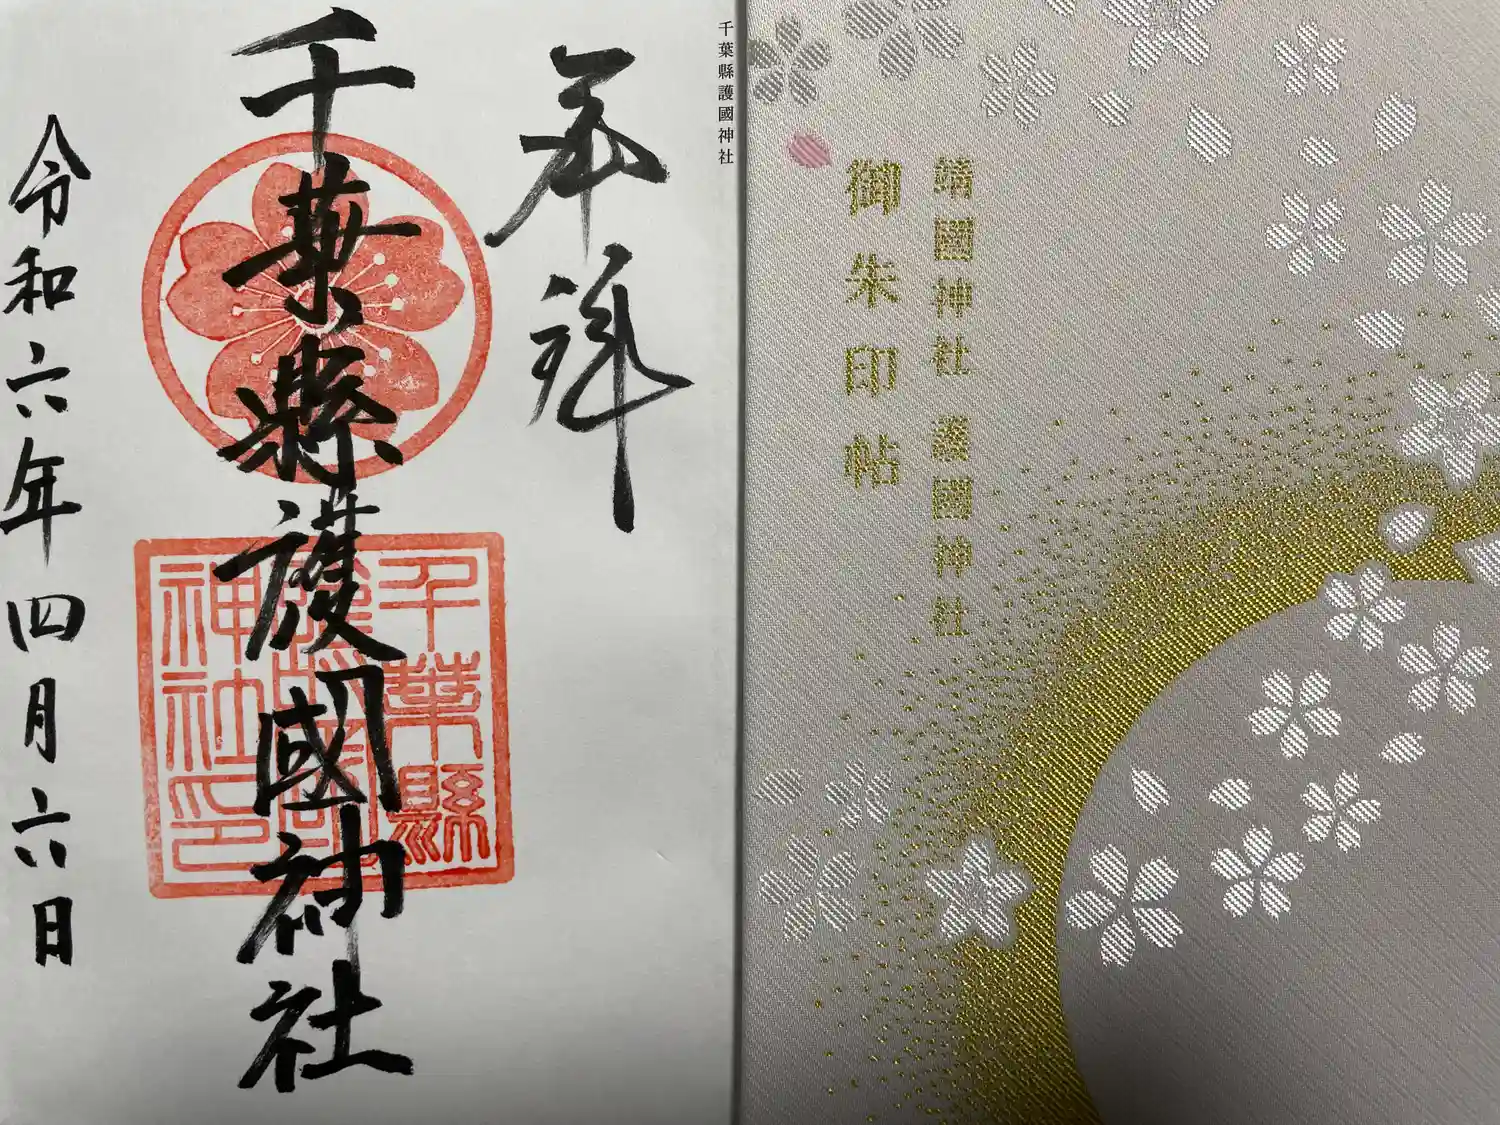 千葉縣護國神社
奉拝
千葉縣護國神社
千葉縣
護國
神社印
令和六年四月六日
靖國神社 護國神社
御朱印帖